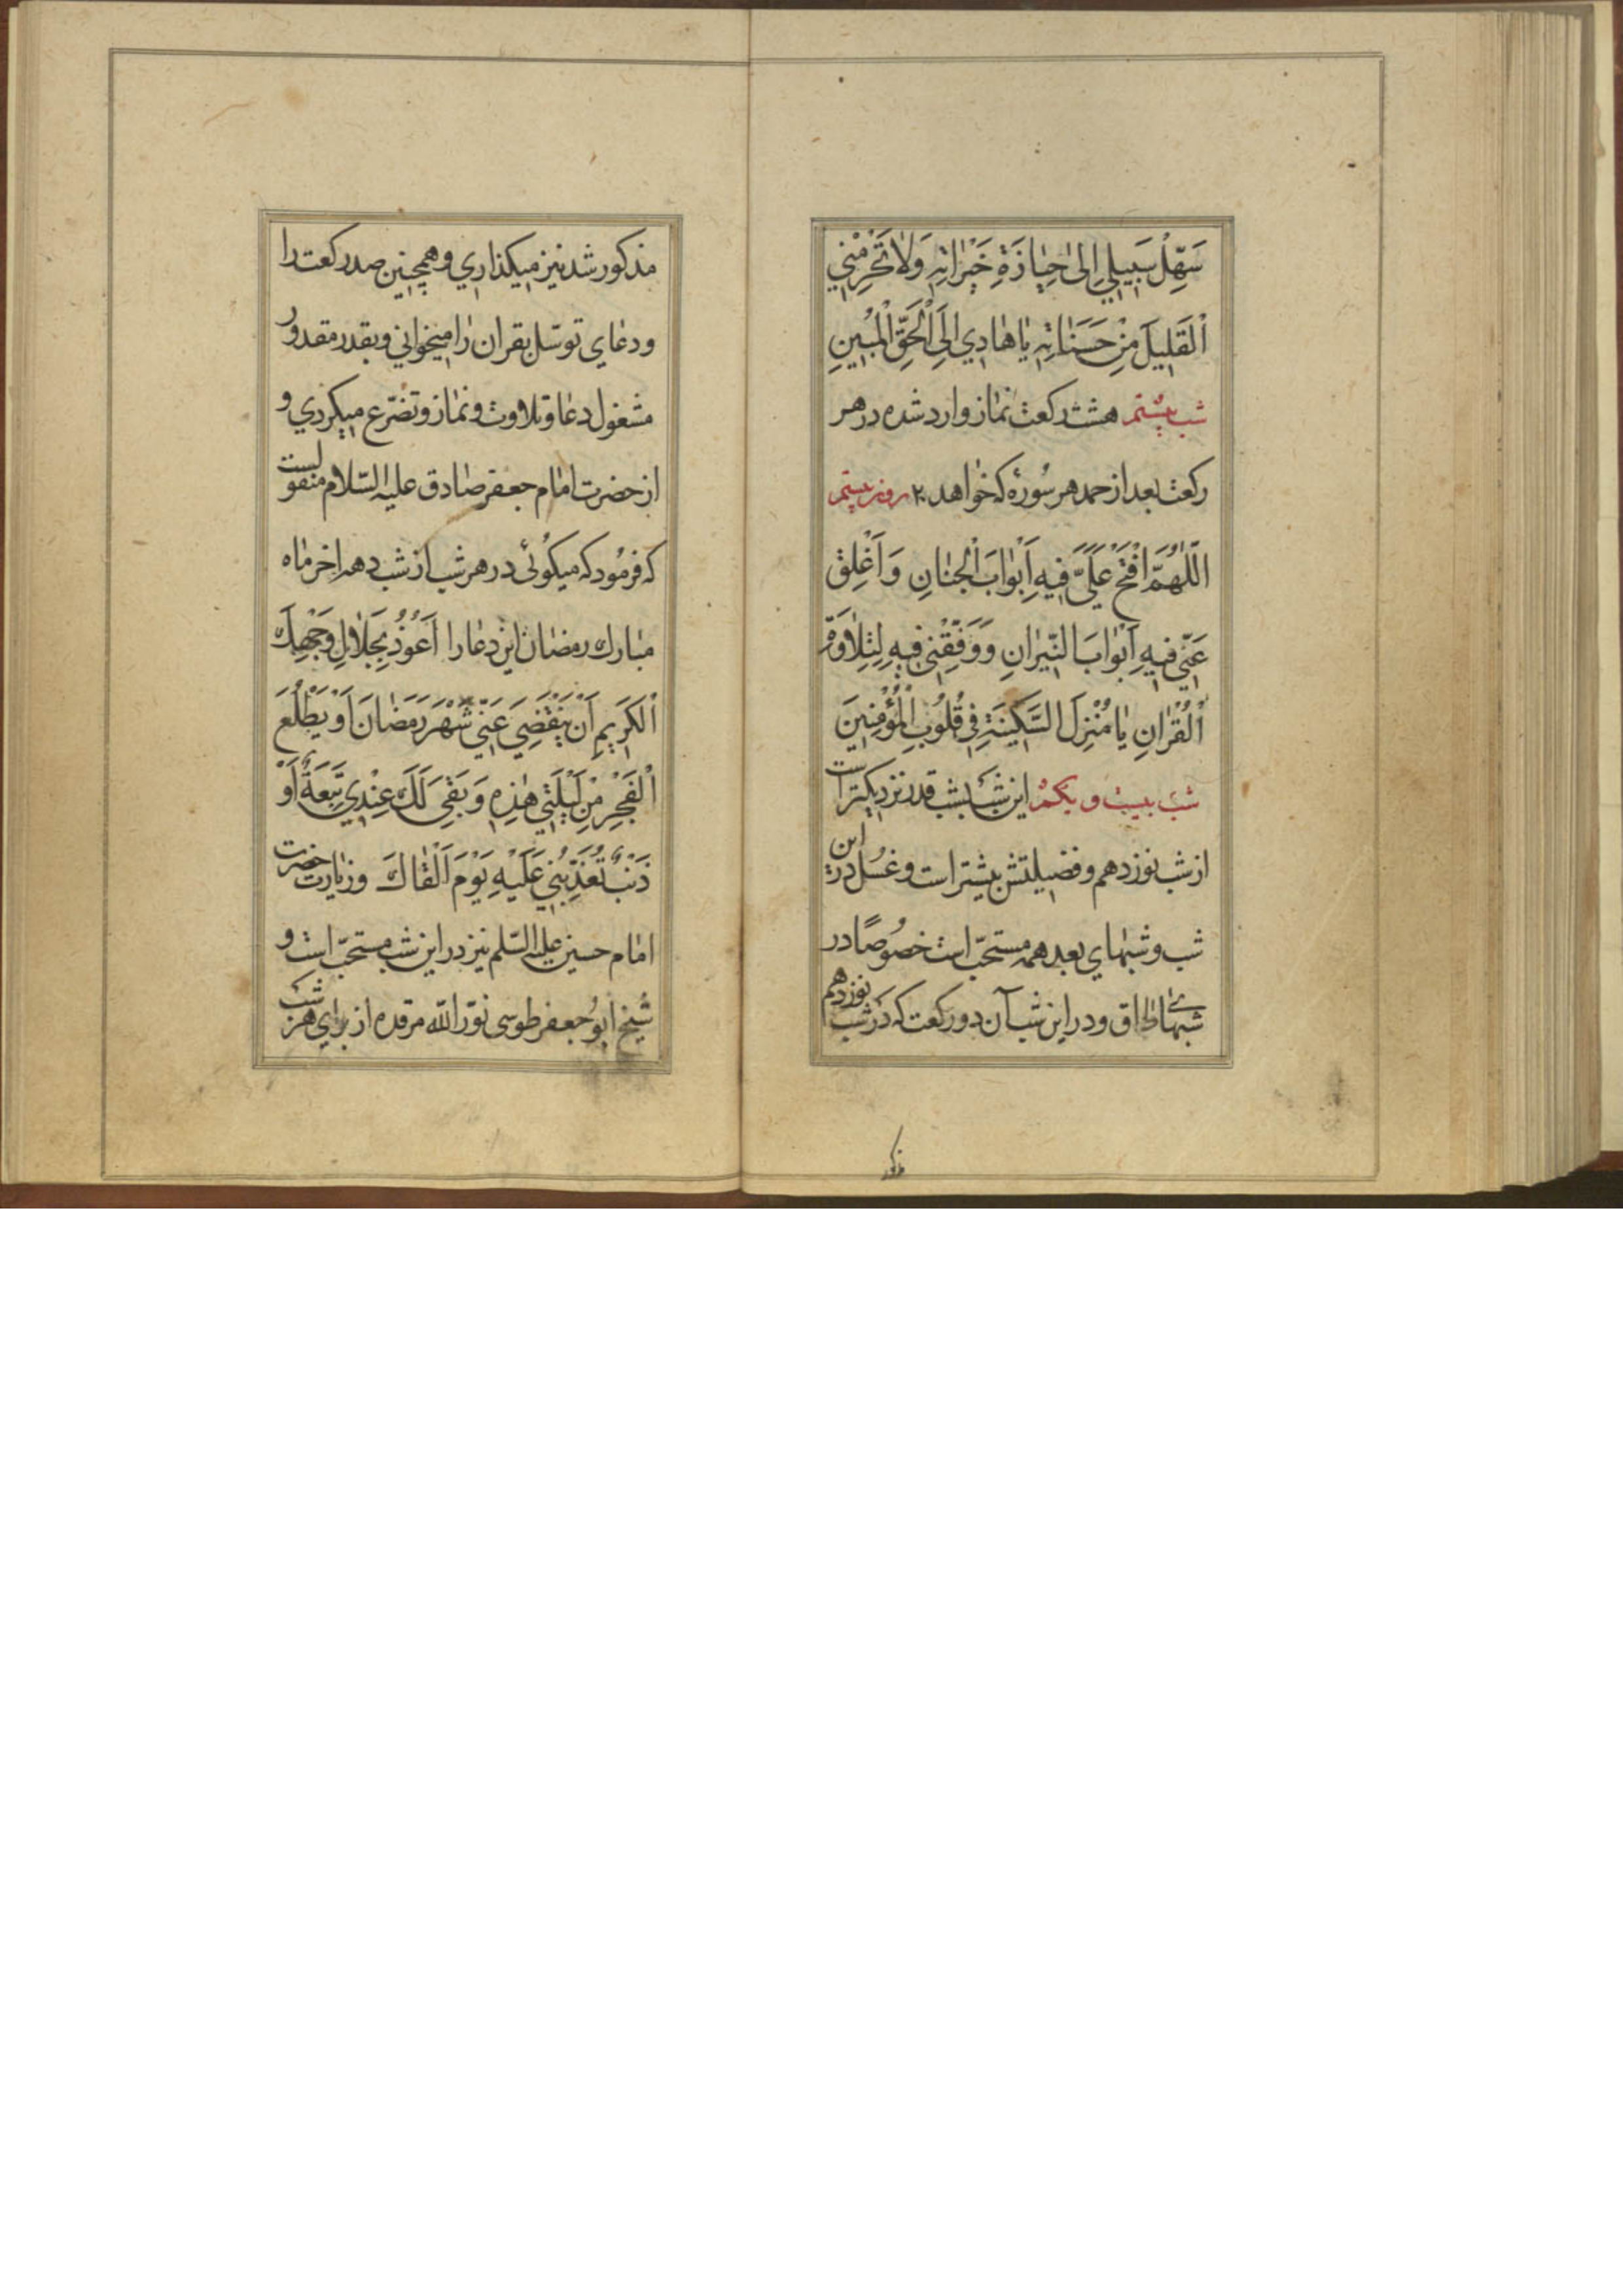 سَهِّلْ سَبِيلِي اِلىٰ حِيٰازَةِ خَيْرٰاتِهِ وَلاٰ تَحْرِمْنِي
اَلْقَلِيلَ مِنْ حَسَنٰاتِهِ يٰا هٰادِي اِلَى اَلْحَقِّ اَلْمُبِينِ
شب بیستم هشت رکعت نماز وارد شده در هر
رکعت بعد از حمد هر سُورهٔ که خواهد ۲۰ روز بیستم
اَللّٰهُمَّ افْتَحْ عَلَيَّ فِيهِ اَبْوٰابَ اَلْجِنٰانِ وَ اَغْلِقْ
عَنِّي فِيهِ اَبْوٰابَ النِّيرٰانِ وَ وَفِّقْنِي فِيهِ لِتِلاٰوَةِ
اَلْقُرْاٰنِ يٰا مُنْزِلَ السَّكِينَةِ فِي قُلُوبِ الْمُؤْمِنِينَ
شب بیست و یکم این شب بشب قدر نزدیکتر است
از شب نوزدهم و فضیلتش بیشتر است و غسل در این
شب و شبهای بعد همه مستحبّ است خصُوصًا در
شبهای طاق و در این شب آن دو رکعت که در شب نوزدهم
مذکور
مذکور شد نیز میکذاري و همچنین صد رکعت را
و دعٰاي توسّل بقران رٰا میخواني و بقدر مقدور
مشغول دعا و تلاوت و نماز و تضرّع میکردي و
از حضرت امٰام جعفر صٰادق علیه السّلام منقولست
که فرمُود که میکوئی در هر شب از شب دهه اخر مٰاه
مبٰارك رمضان این دعٰا را اَعُوذُ بِجَلاٰلِ وَجْهِكَ
اَلْكَرِيمِ اَنْ يَنْقَضِيَ عَنِّي شَهْرُ رَمَضٰانَ اَوْ يَطْلُعَ
اَلْفَجْرُ مِنْ لَيْلَتِي هٰذِهِ وَ بَقِيَ لَكَ عِنْدِي تَبِعَةٌ اَوْ
ذَنْبٌ تُعَذِّبُنِي عَلَيْهِ يَوْمَ اَلْقٰاكَ و زیٰارت حضرت
امٰام حسین علیه السّلم نیز در این شب مستحبّ است و
شیخ ابوُ جعفر طوسی نوّر اللّه مرقده از برٰاي هر شب